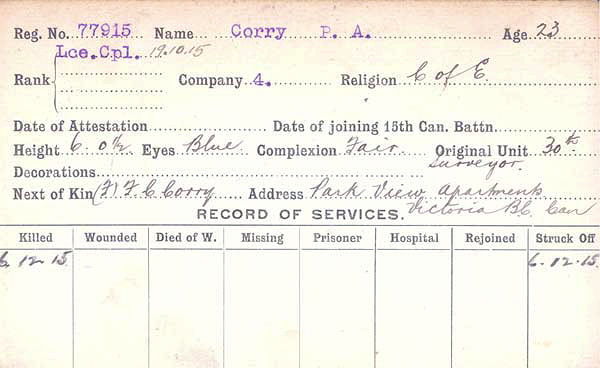 Reg. No. 77915 Name Corry P. A. Age 23
Lce.Cpl. 19.10.15
Rank Company 4. Religion C of E.
Date of Attestation Date of joining 15th Can. Battn.
Height 6.0½ Eyes Blue Complexion Fair Original Unit 30th
Decorations Surveyor.
Next of Kin (F) F. C. Corry Address Park View Apartments
RECORD OF SERVICES. Victoria B.C. Can
Killed Wounded Died of W. Missing Prisoner Hospital Rejoined Struck Off
6.12.15 6.12.15